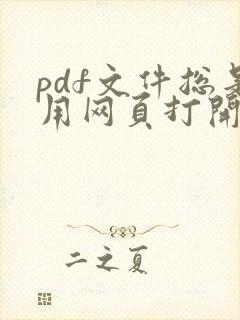 pdf文件总是
用网页打開
二之夏